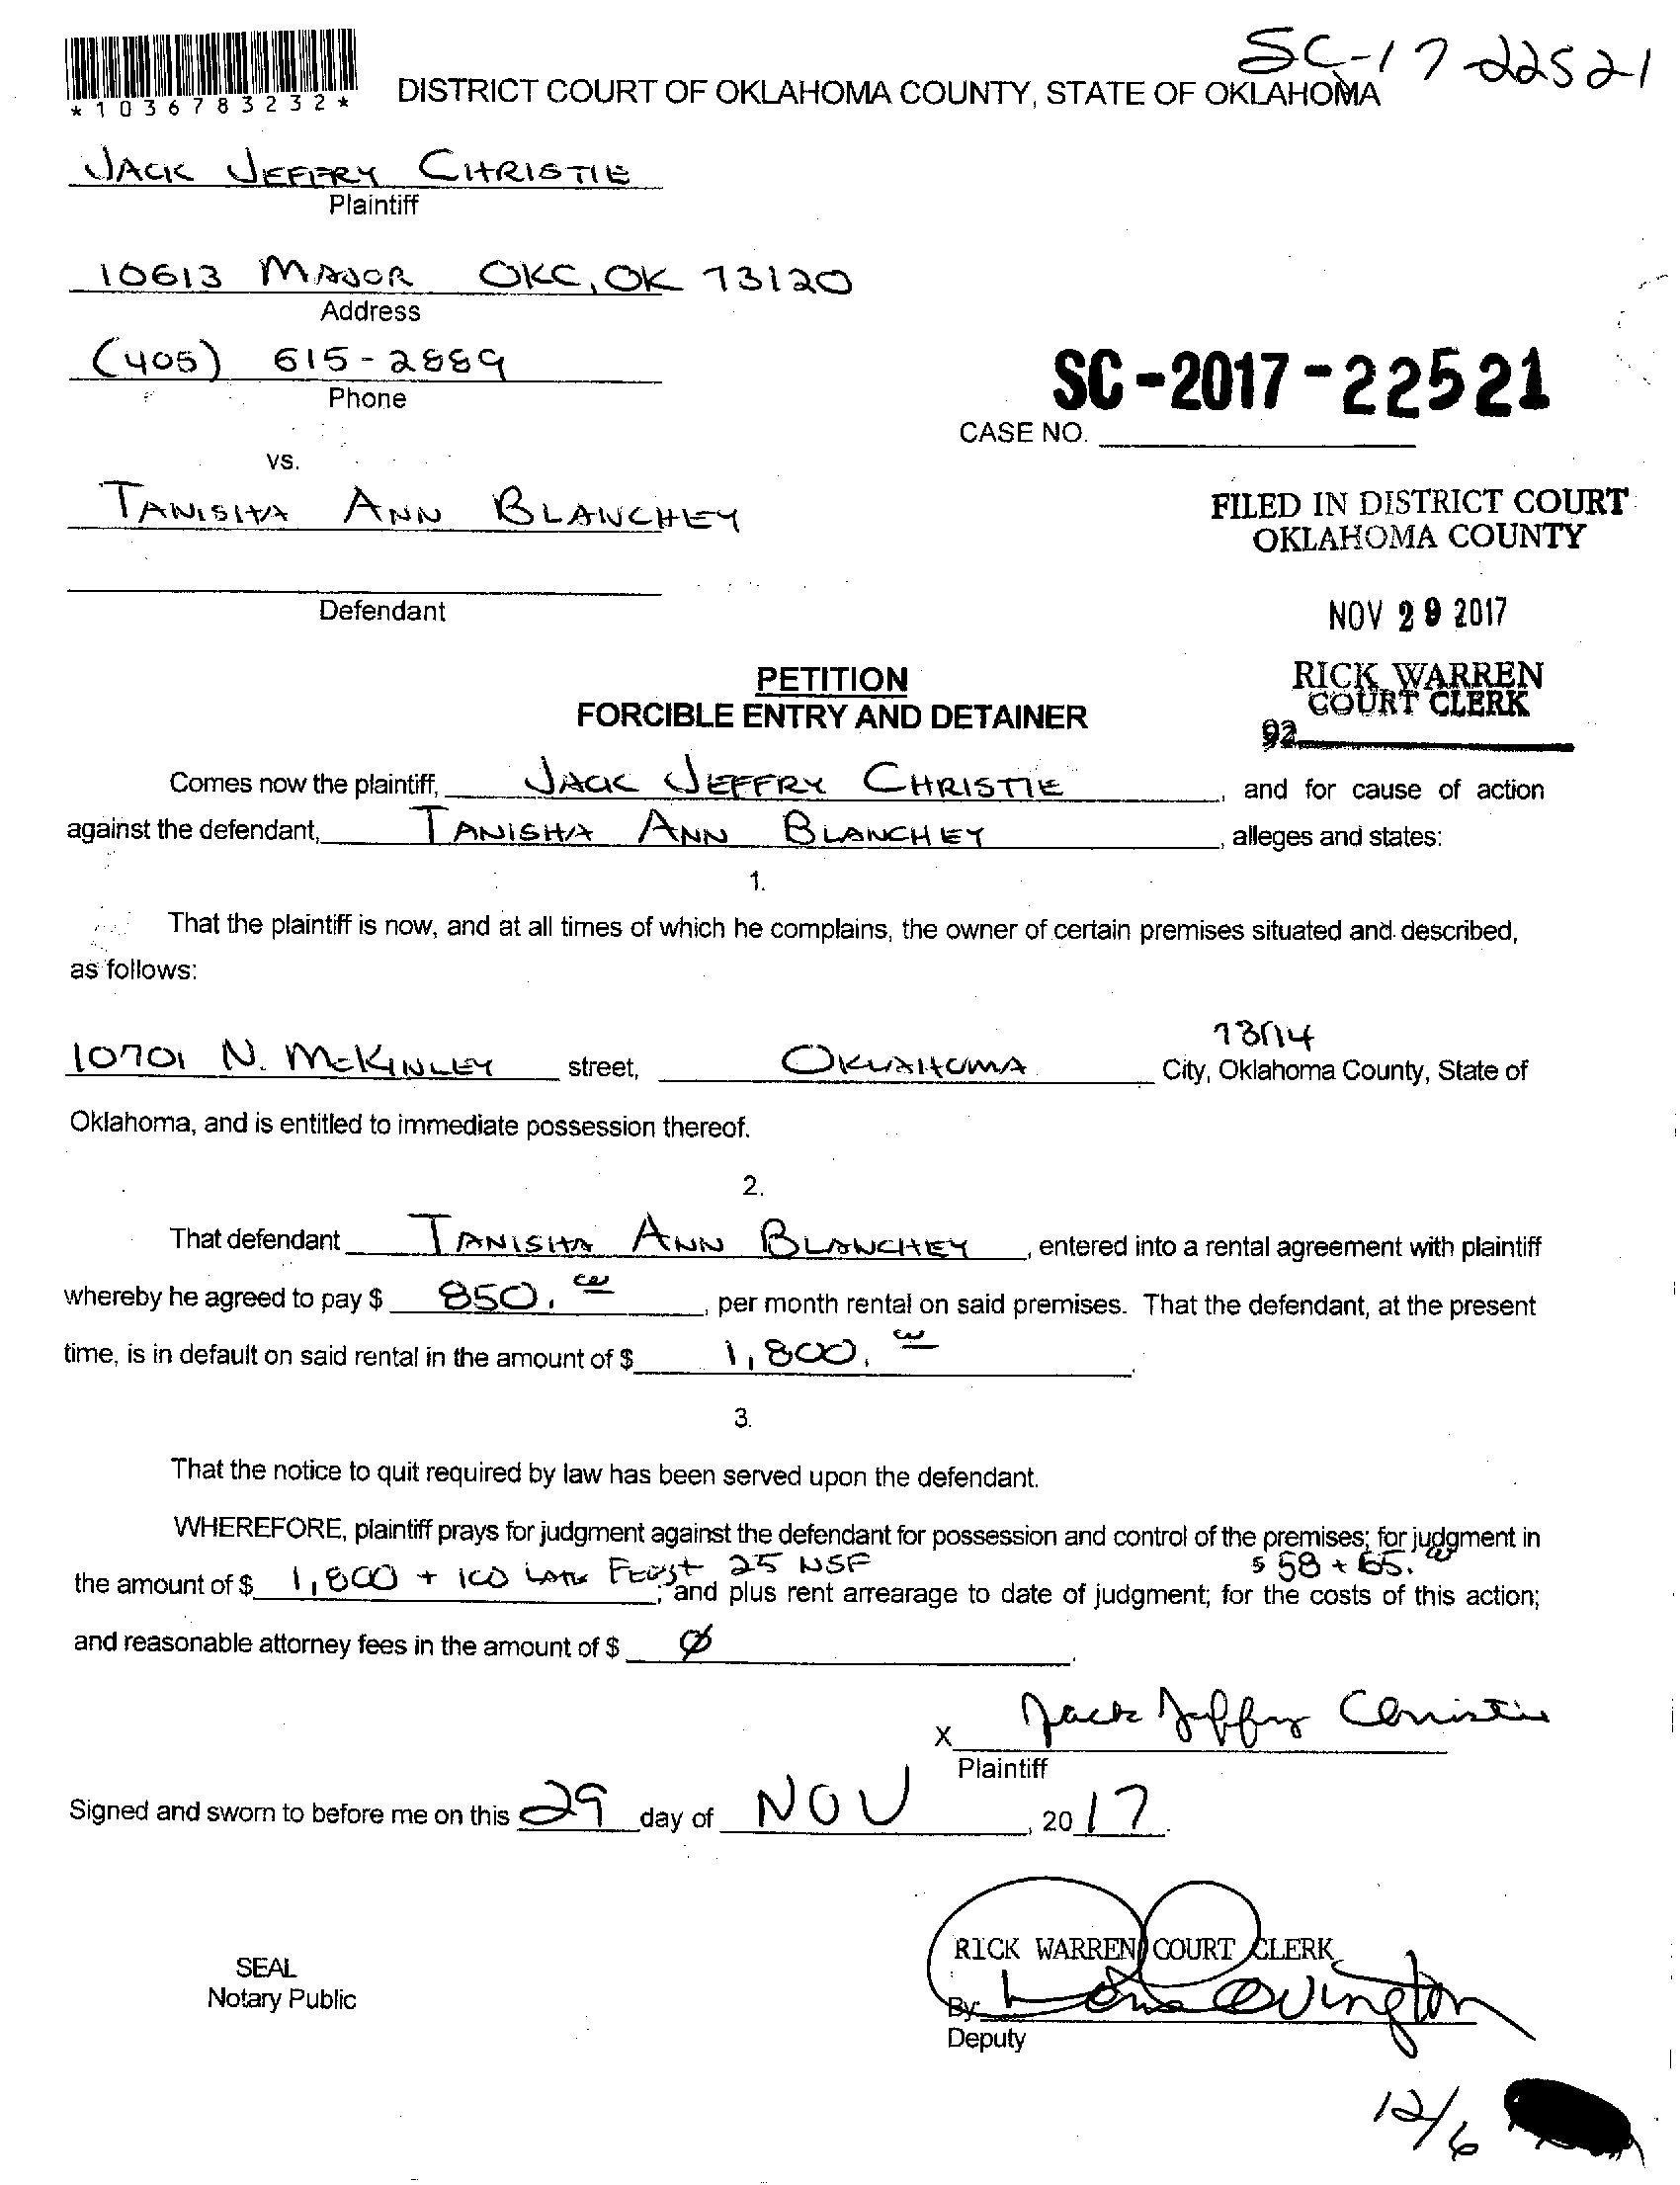 SC-17-22521
*1036783232*
DISTRICT COURT OF OKLAHOMA COUNTY, STATE OF OKLAHOMA
JACK JEFFRY CHRISTIE
Plaintiff
10613 MAJOR OKC, OK 73120
Address
(405) 615-2889
Phone
SC-2017-22521
CASE NO.
vs.
TANISHA ANN BLANCHEY
FILED IN DISTRICT COURT
OKLAHOMA COUNTY
Defendant
NOV 29 2017
PETITION
FORCIBLE ENTRY AND DETAINER
RICK WARREN
COURT CLERK
92
Comes now the plaintiff, JACK JEFFRY CHRISTIE, and for cause of action
against the defendant, TANISHA ANN BLANCHEY, alleges and states:
1.
That the plaintiff is now, and at all times of which he complains, the owner of certain premises situated and described,
as follows:
73114
10701 N. McKINLEY street, OKLAHOMA City, Oklahoma County, State of
Oklahoma, and is entitled to immediate possession thereof.
2.
That defendant TANISHA ANN BLANCHEY, entered into a rental agreement with plaintiff
whereby he agreed to pay $ 850.00, per month rental on said premises. That the defendant, at the present
time, is in default on said rental in the amount of $ 1,800.00.
3.
That the notice to quit required by law has been served upon the defendant.
WHEREFORE, plaintiff prays for judgment against the defendant for possession and control of the premises; for judgment in
the amount of $ 1,800 + 100 LATE FEES + 25 NSF; and plus rent arrearage to date of judgment; for the costs of this action; $ 58 + 65.00
and reasonable attorney fees in the amount of $ Ø.
X Jack Jeffry Christie
Plaintiff
Signed and sworn to before me on this 29 day of NOV, 2017.
RICK WARREN COURT CLERK
SEAL
Notary Public
By: Covington
Deputy
12/6